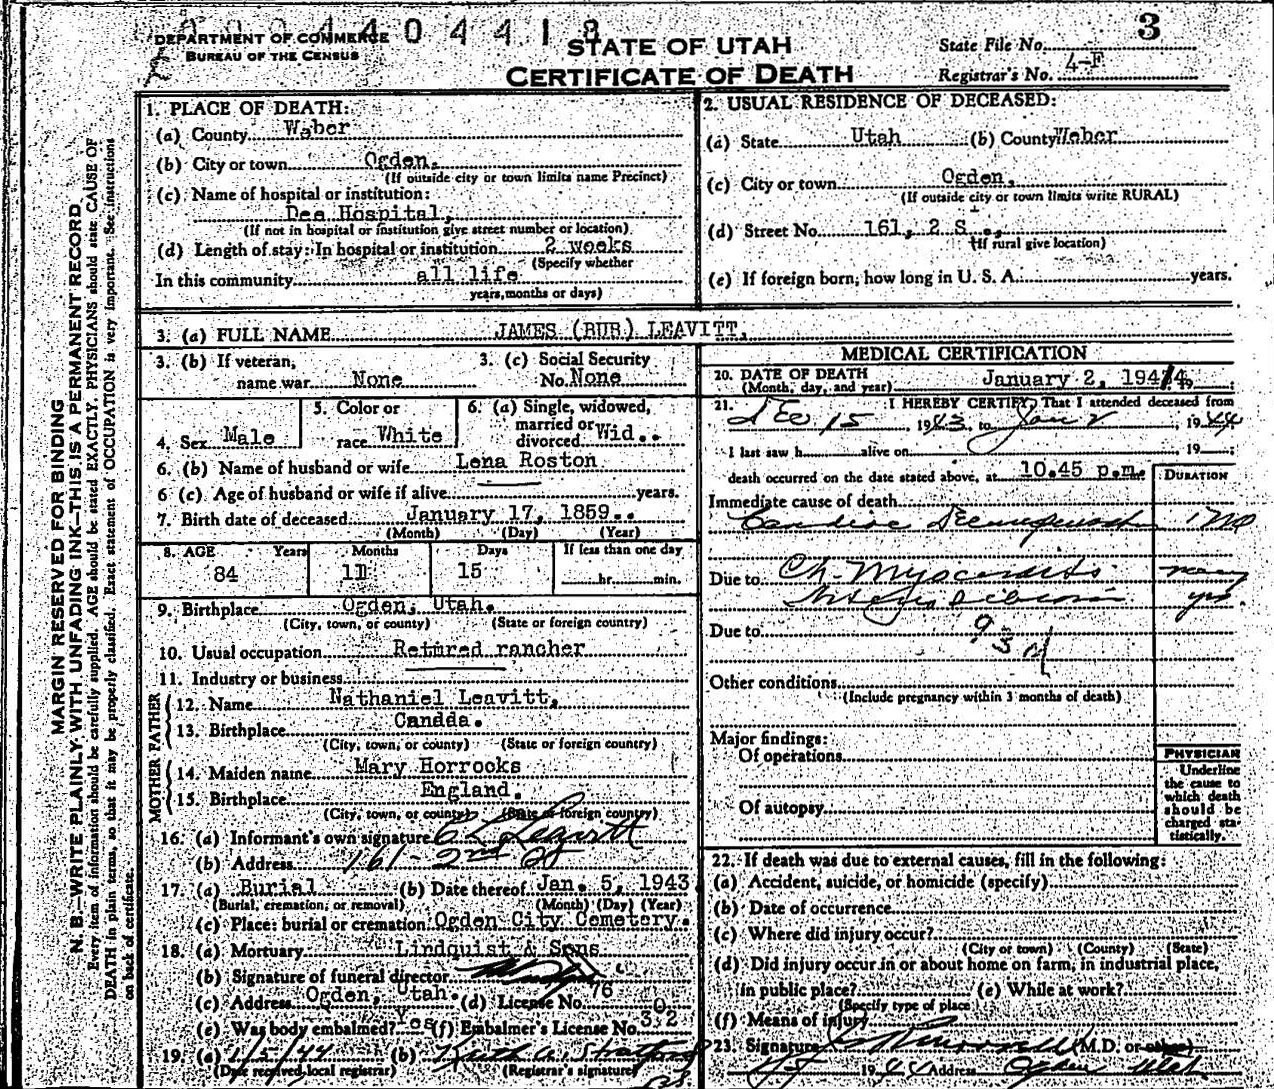 DEPARTMENT OF COMMERCE
BUREAU OF THE CENSUS
404418
STATE OF UTAH
CERTIFICATE OF DEATH
3
State File No.
Registrar's No. 4-F
MARGIN RESERVED FOR BINDING
N. B.—WRITE PLAINLY WITH UNFADING INK—THIS IS A PERMANENT RECORD
Every item of information should be carefully supplied. AGE should be stated EXACTLY. PHYSICIANS should state CAUSE OF
DEATH in plain terms, so that it may be properly classified. Exact statement of OCCUPATION is very important. See instructions
on back of certificate.
1. PLACE OF DEATH:
(a) County Weber
(b) City or town Ogden.
(If outside city or town limits name Precinct)
(c) Name of hospital or institution:
Dee Hospital,
(If not in hospital or institution give street number or location)
(d) Length of stay: In hospital or institution 2 weeks
(Specify whether
In this community all life
years, months or days)
2. USUAL RESIDENCE OF DECEASED:
(a) State Utah (b) County Weber
(c) City or town Ogden,
(If outside city or town limits write RURAL)
(d) Street No. 161, 2 S
(If rural give location)
(e) If foreign born, how long in U. S. A. years.
3. (a) FULL NAME JAMES (BUB) LEAVITT,
3. (b) If veteran, name war None
3. (c) Social Security No. None
4. Sex Male
5. Color or race White
6. (a) Single, widowed, married or divorced Wid..
6. (b) Name of husband or wife Lena Roston
6 (c) Age of husband or wife if alive years.
7. Birth date of deceased January 17, 1859..
(Month) (Day) (Year)
8. AGE Years Months Days If less than one day
84 11 15 hr. min.
9. Birthplace Ogden, Utah.
(City, town, or county) (State or foreign country)
10. Usual occupation Retired rancher
11. Industry or business
FATHER
12. Name Nathaniel Leavitt,
13. Birthplace Candda.
(City, town, or county) (State or foreign country)
MOTHER
14. Maiden name Mary Horrooks
15. Birthplace England.
(City, town, or county) (State or foreign country)
16. (a) Informant's own signature Leavitt
(b) Address 161 - 2nd St
17. (a) Burial (b) Date thereof Jan. 5, 1943
(Burial, cremation, or removal) (Month) (Day) (Year)
(c) Place: burial or cremation Ogden City Cemetery.
18. (a) Mortuary Lindquist & Sons
(b) Signature of funeral director
(c) Address Ogden, Utah. (d) License No. 76
(e) Was body embalmed? Yes (f) Embalmer's License No. 302
19. (a) 1/5/44 (b) Keith A. Stratford
(Date received local registrar) (Registrar's signature)
MEDICAL CERTIFICATION
20. DATE OF DEATH January 2, 1944
(Month, day, and year) 19
21. I HEREBY CERTIFY, That I attended deceased from
Dec 15, 1943, to Jan 2, 1944
I last saw h alive on , 19 ;
death occurred on the date stated above, at 10.45 p.m.
DURATION
Immediate cause of death
Cardiac
Due to Ch. Myocarditis many
yrs.
Due to
93
Other conditions
(Include pregnancy within 3 months of death)
Major findings:
Of operations
Of autopsy
PHYSICIAN
Underline
the cause to
which death
should be
charged sta-
tistically.
22. If death was due to external causes, fill in the following:
(a) Accident, suicide, or homicide (specify)
(b) Date of occurrence
(c) Where did injury occur?
(City or town) (County) (State)
(d) Did injury occur in or about home on farm, in industrial place,
in public place? (e) While at work?
(Specify type of place)
(f) Means of injury
23. Signature M.D. or
1944 Address Ogden Utah